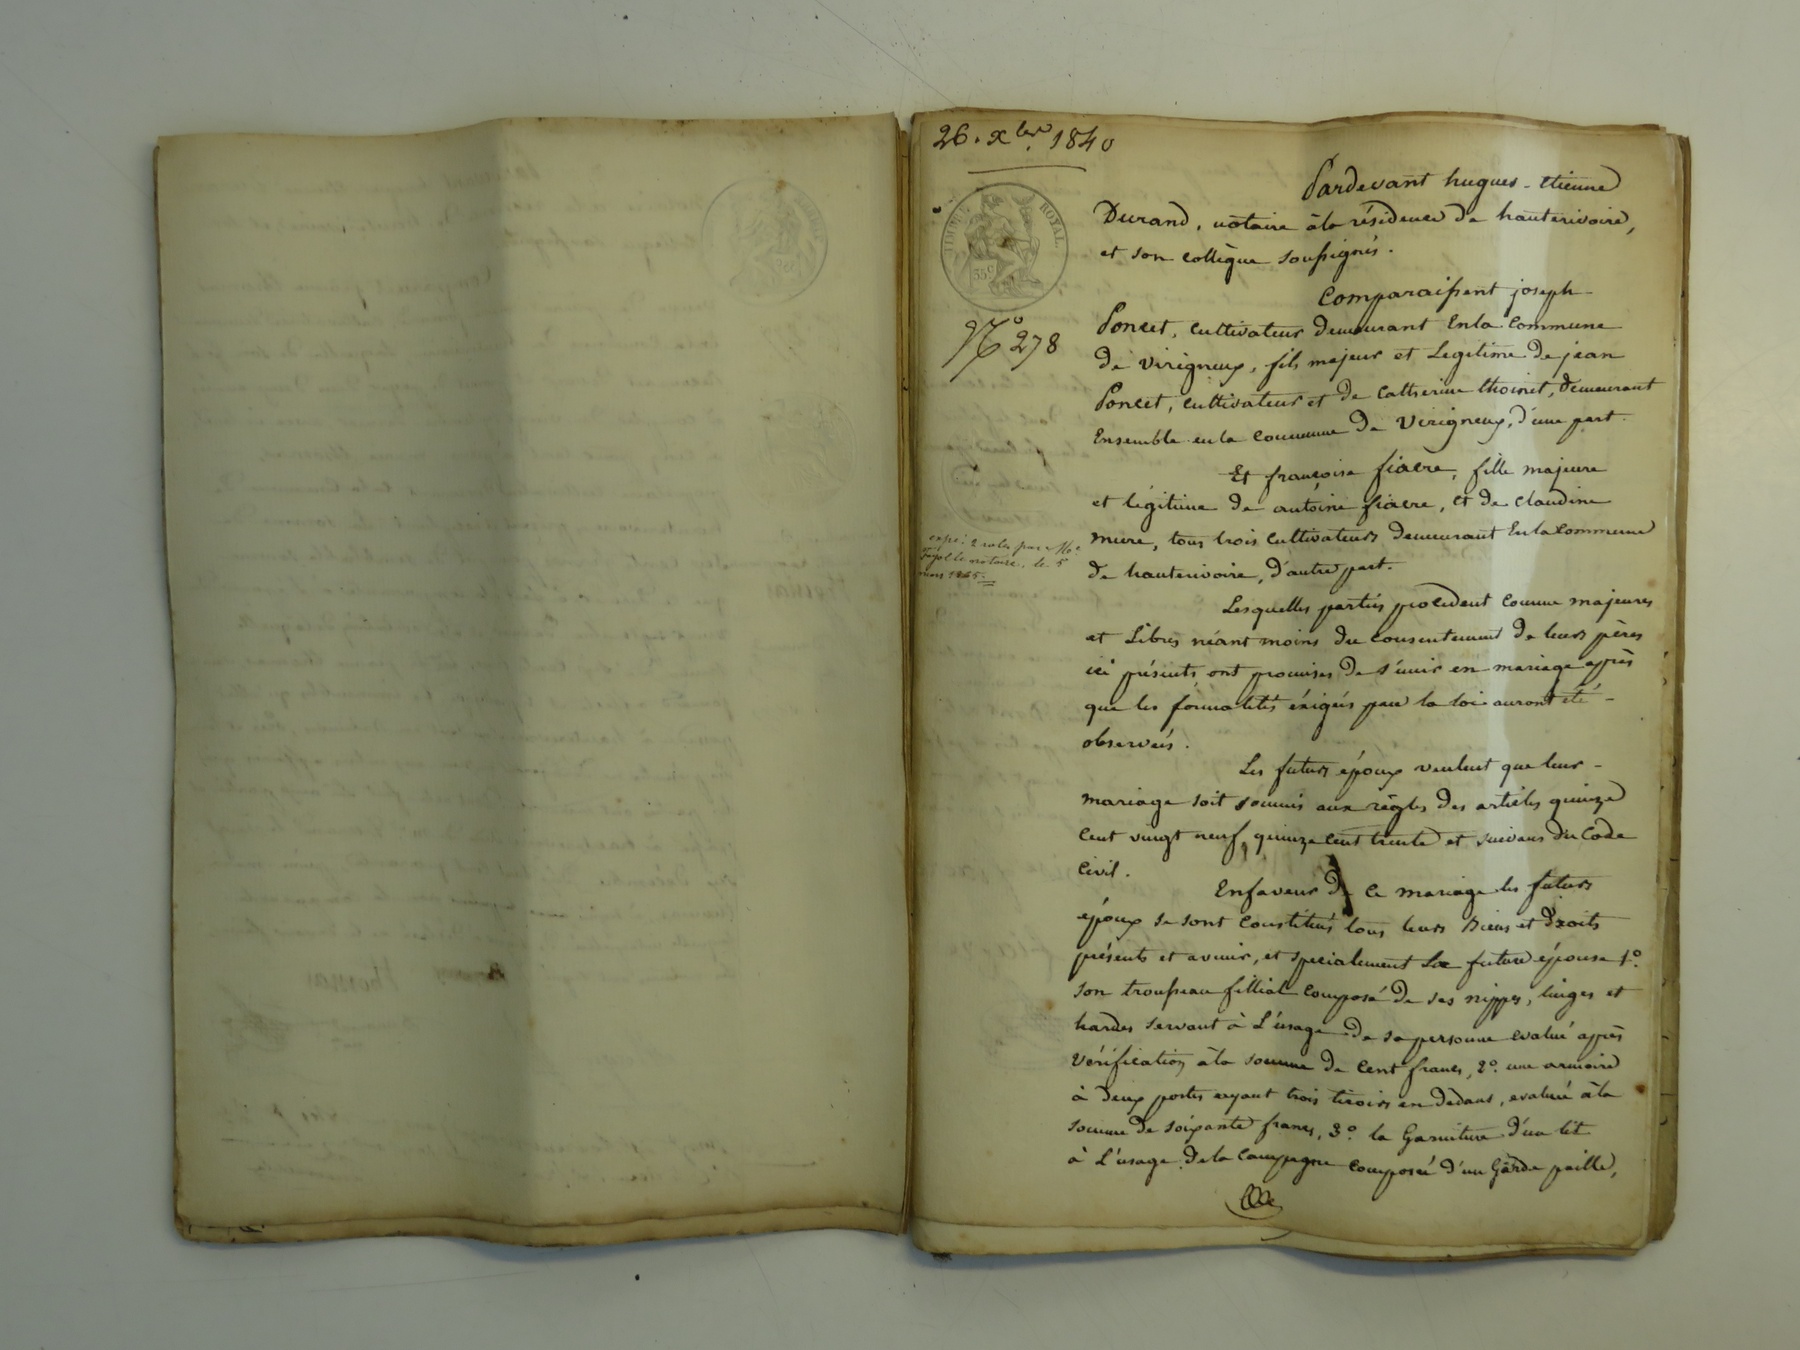 26. Xbre 1840
TIMBRE ROYAL.
35c
No 278
Pardevant hugues - Etienne
Durand, notaire à la résidence de hauterivoire,
et son collègue soussignés.
Comparaissent joseph
Poncet, cultivateur demeurant En la Commune
de Virigneux, fils majeur et Legitime de jean
Poncet, cultivateur et de Catherine thoinet, demeurant
Ensemble en la commune de Virigneux, d'une part.
Et françoise fiacre, fille majeure
et légitime de antoine fiacre, et de claudine
mure, tous trois cultivateurs demeurant En la Commune
de hauterivoire, d'autre part.
expé: 2 roles par Me
notaire, le 5
Lesquelles parties procedent comme majeures
et Libres néant moins du consentement de leurs pères
ici présents ont promises de s'unir en mariage après
que les formalités éxigées par la loi auront été -
observées.
Les futurs époux veulent que leur -
mariage soit soumis aux règles des articles quinze
cent vingt neuf, quinze cent trente et suivans du Code
Civil.
En faveur de ce mariage les futurs
époux se sont constitués tous leurs Biens et Droits
présents et avenir, et specialement La future épouse 1°.
son trousseau fillial composé de ses nippes, linges et
hardes servant à L'usage de sa personne evalué après
Vérification à la somme de Cent francs, 2°. une armoire
à deux portes ayant trois tiroirs en dedans, evaluée à la
somme de soixante francs, 3°. la Garniture d'un lit
à L'usage de la Campagne composée d'un Garde paille,